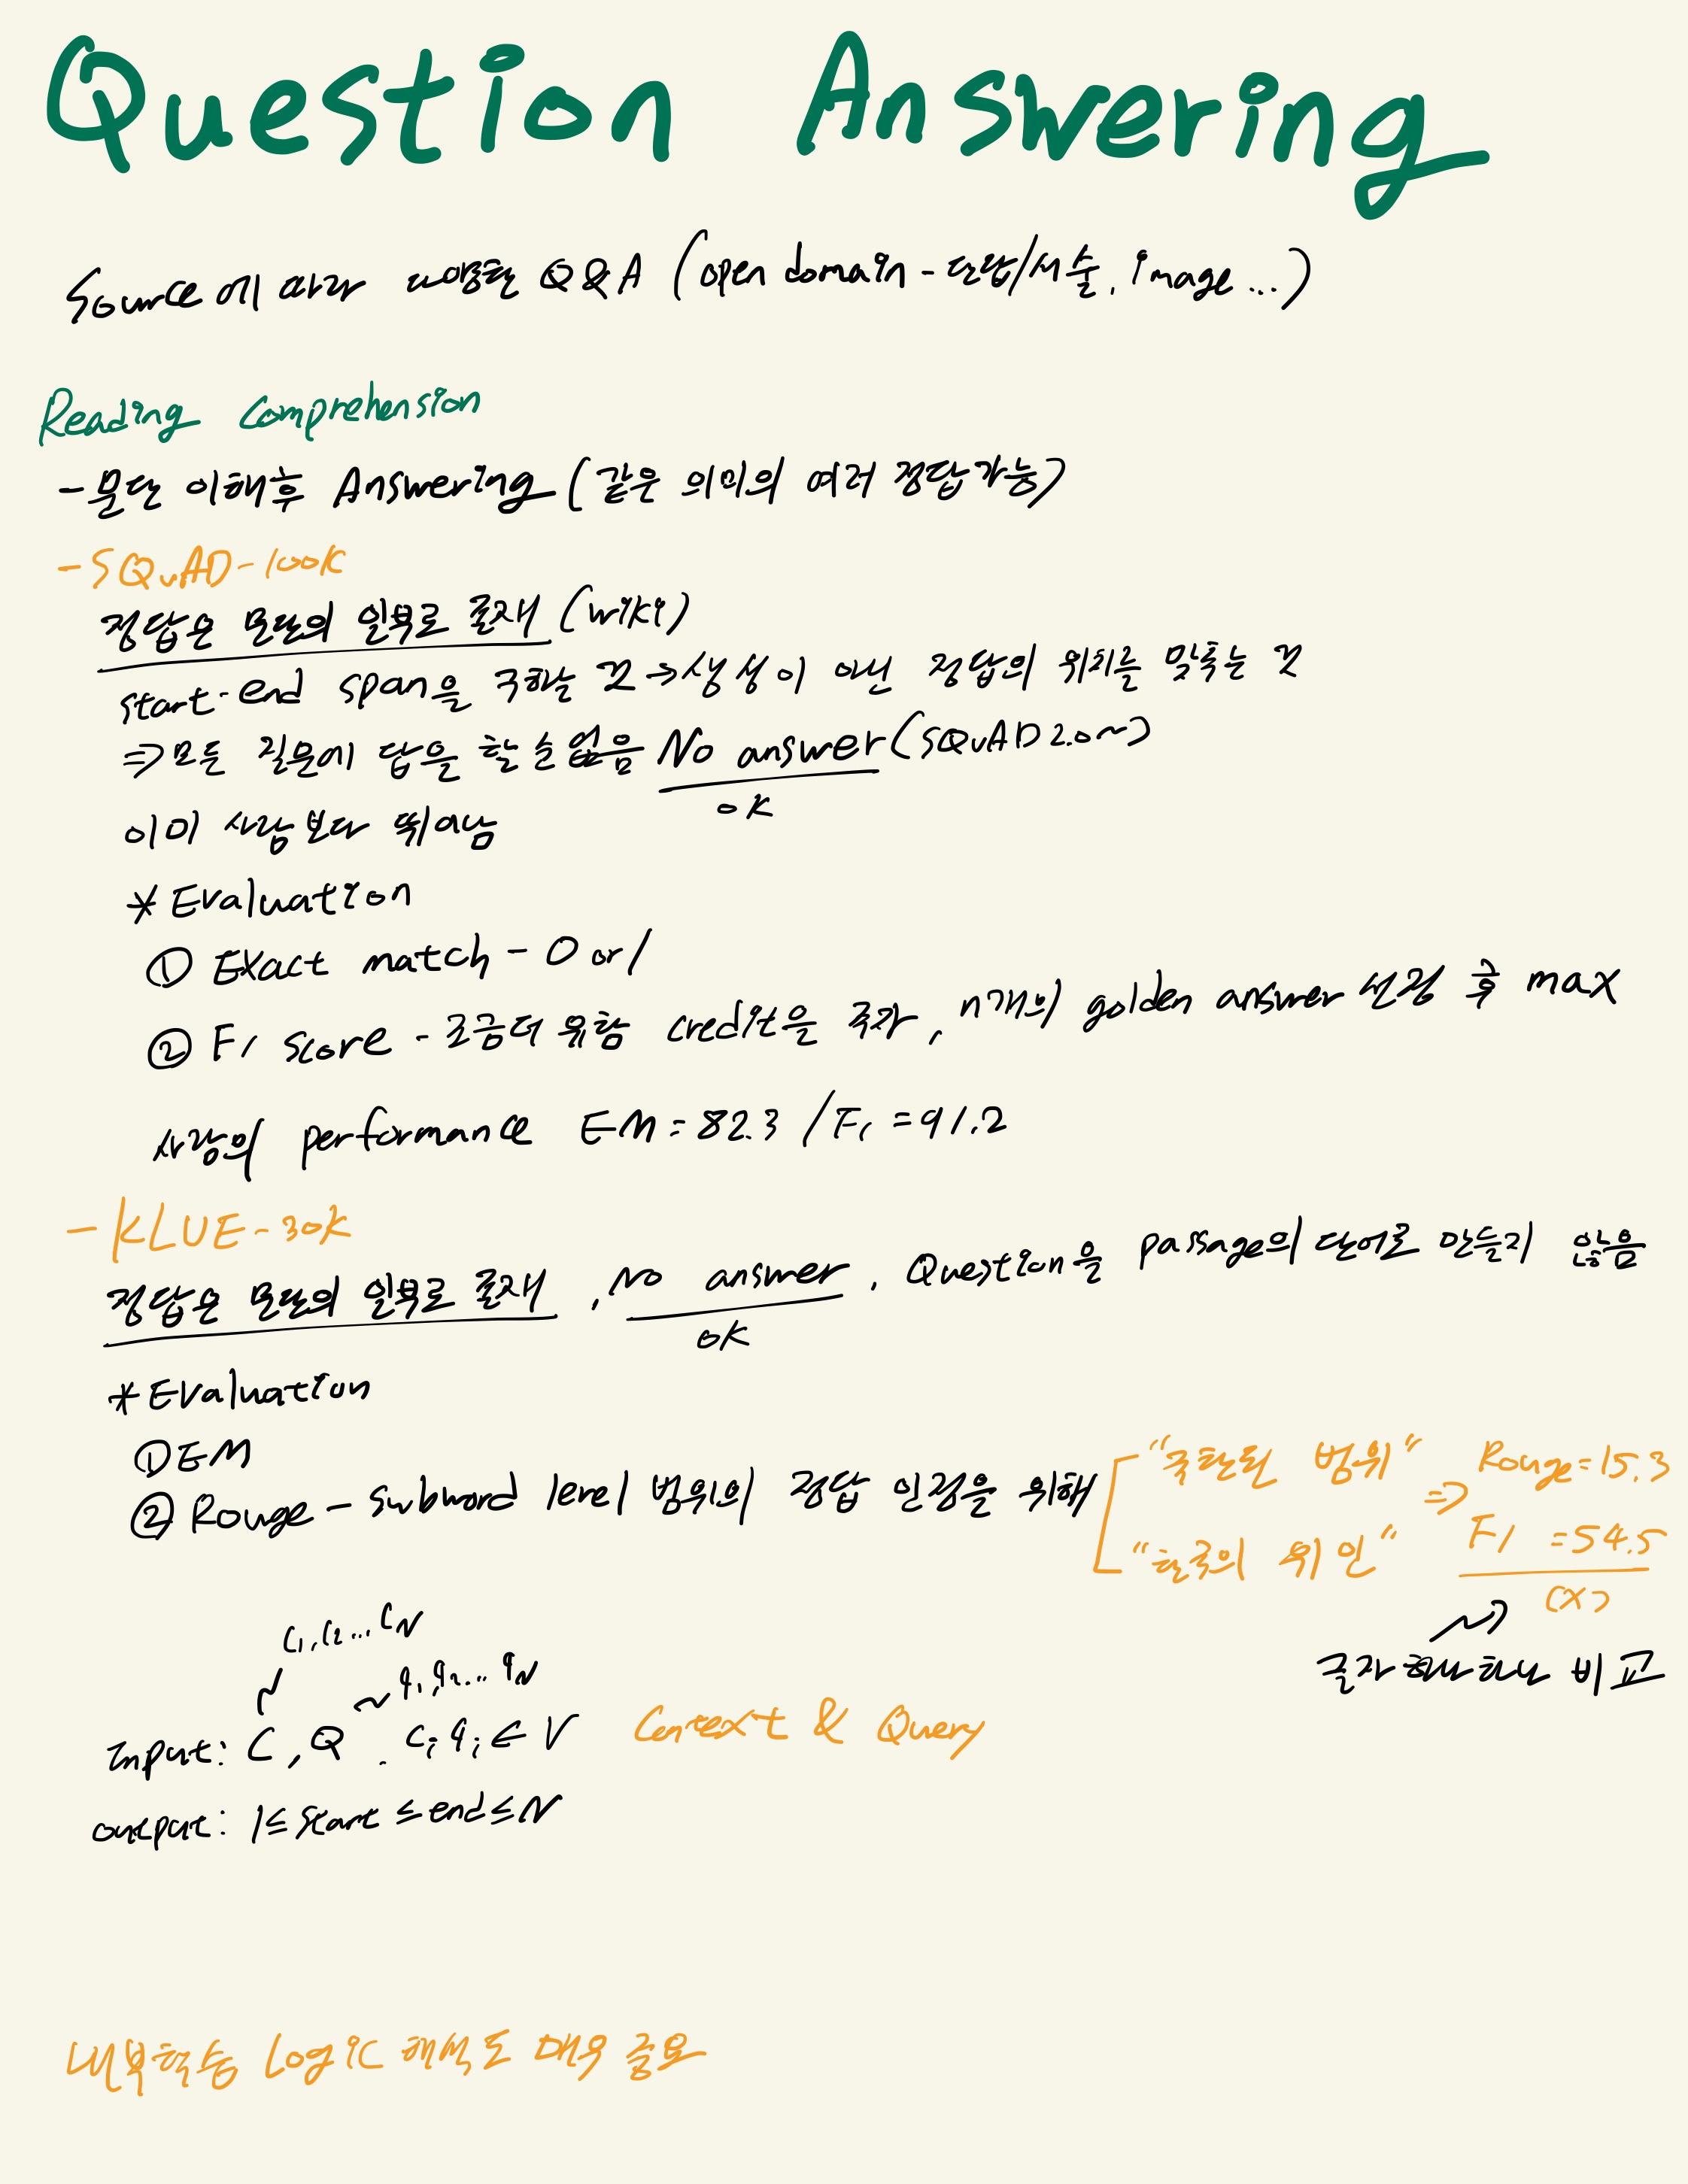 Question Answering
Source에 따라 다양한 Q&A (open domain - 단답/서술, image ...)
Reading Comprehension
- 문단 이해후 Answering (같은 의미의 여러 정답가능)
- SQuAD - 100K
정답은 문단의 일부로 존재 (wiki)
start-end span을 구하는 것 → 생성이 아닌 정답의 위치를 맞추는 것
⇒ 모든 질문에 답을 할 순 없음 No answer (SQuAD 2.0~)
OK
이미 사람보다 뛰어남
* Evaluation
① Exact match - 0 or 1
② F1 score - 조금더 유함 credit을 주자, n개의 golden answer 선정 후 max
사람의 performance EM = 82.3 / F1 = 91.2
- KLUE - 30K
정답은 문단의 일부로 존재, No answer, Question을 passage의 단어로 만들지 않음
OK
* Evaluation
① EM
② Rouge - subword level 범위의 정답 인정을 위해
"국한된 범위" ⇒ Rouge = 15.3
"한국의 위인" F1 = 54.5
(X)
글자 하나하나 비교
C1, C2 ... CN
q1, q2 ... qN
Input: C, Q . Ci qi ∈ V Context & Query
output: 1 ≤ start ≤ end ≤ N
내부학습 Logic 해석도 매우 중요